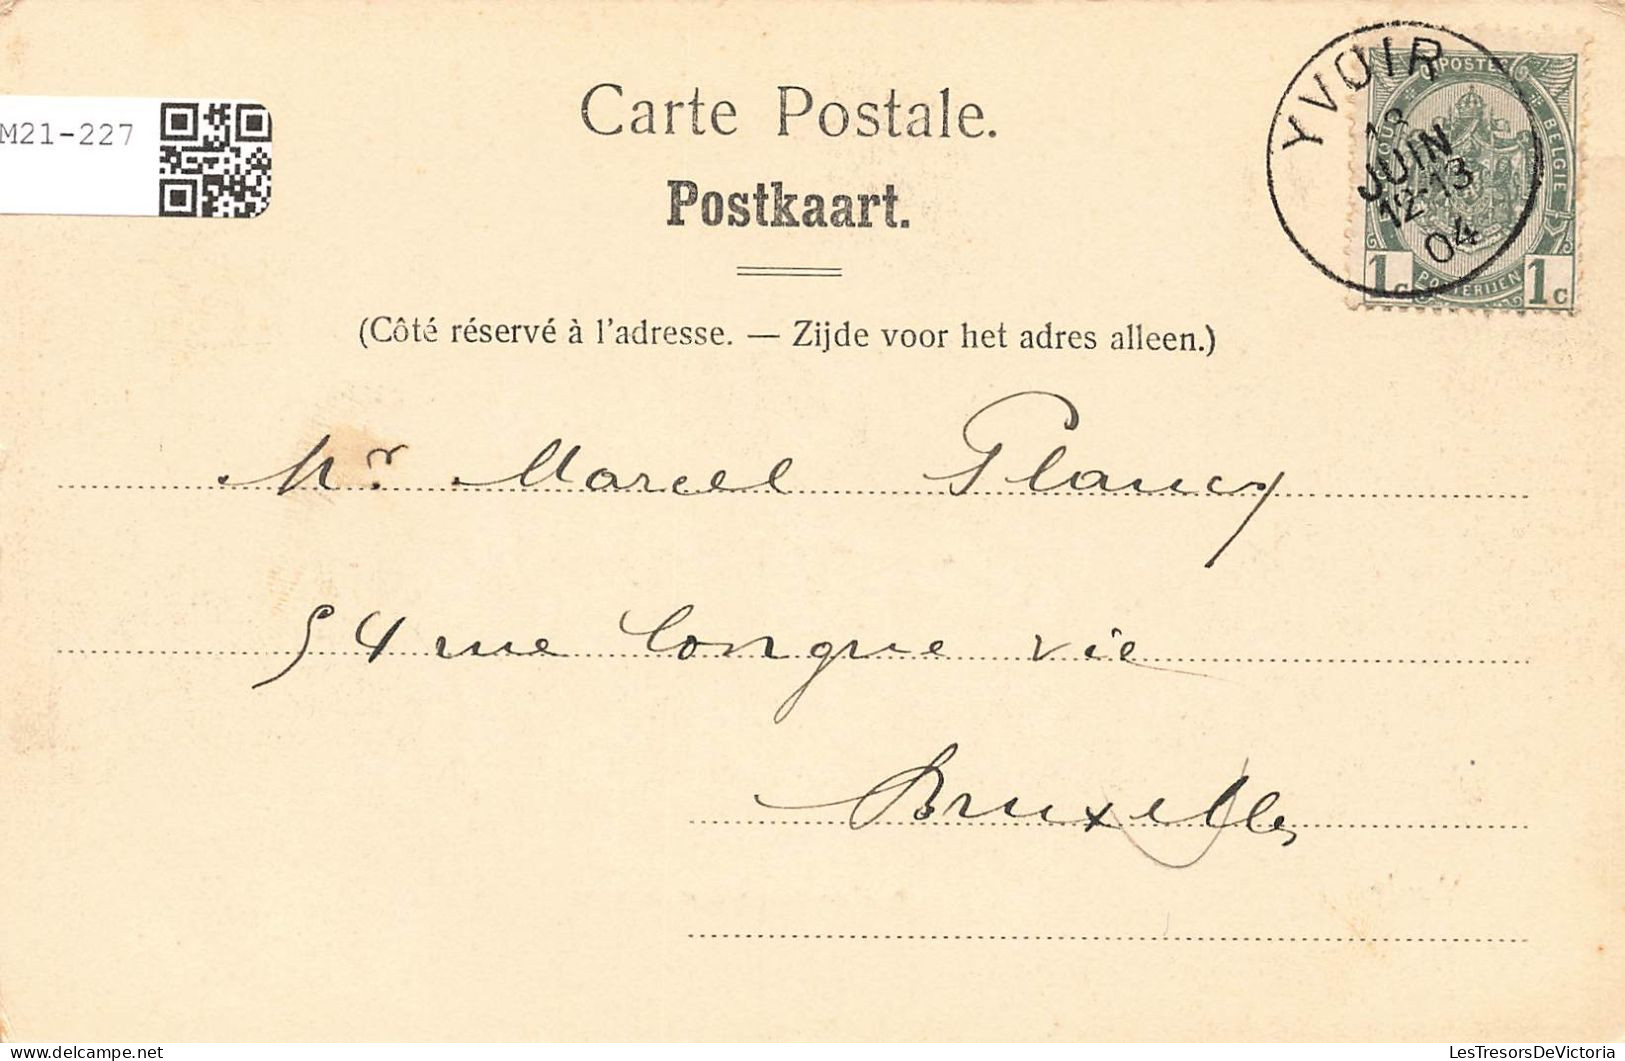 M21-227
Carte Postale.
Postkaart.
(Côté réservé à l'adresse. — Zijde voor het adres alleen.)
YVOIR
18
JUIN
12-13
04
POSTES
BELGIE
POSTERIJEN
1c 1c
Mr Marcel Plancq
54 rue longue vie
Bruxelles
LesTresorsDeVictoria
www.delcampe.net